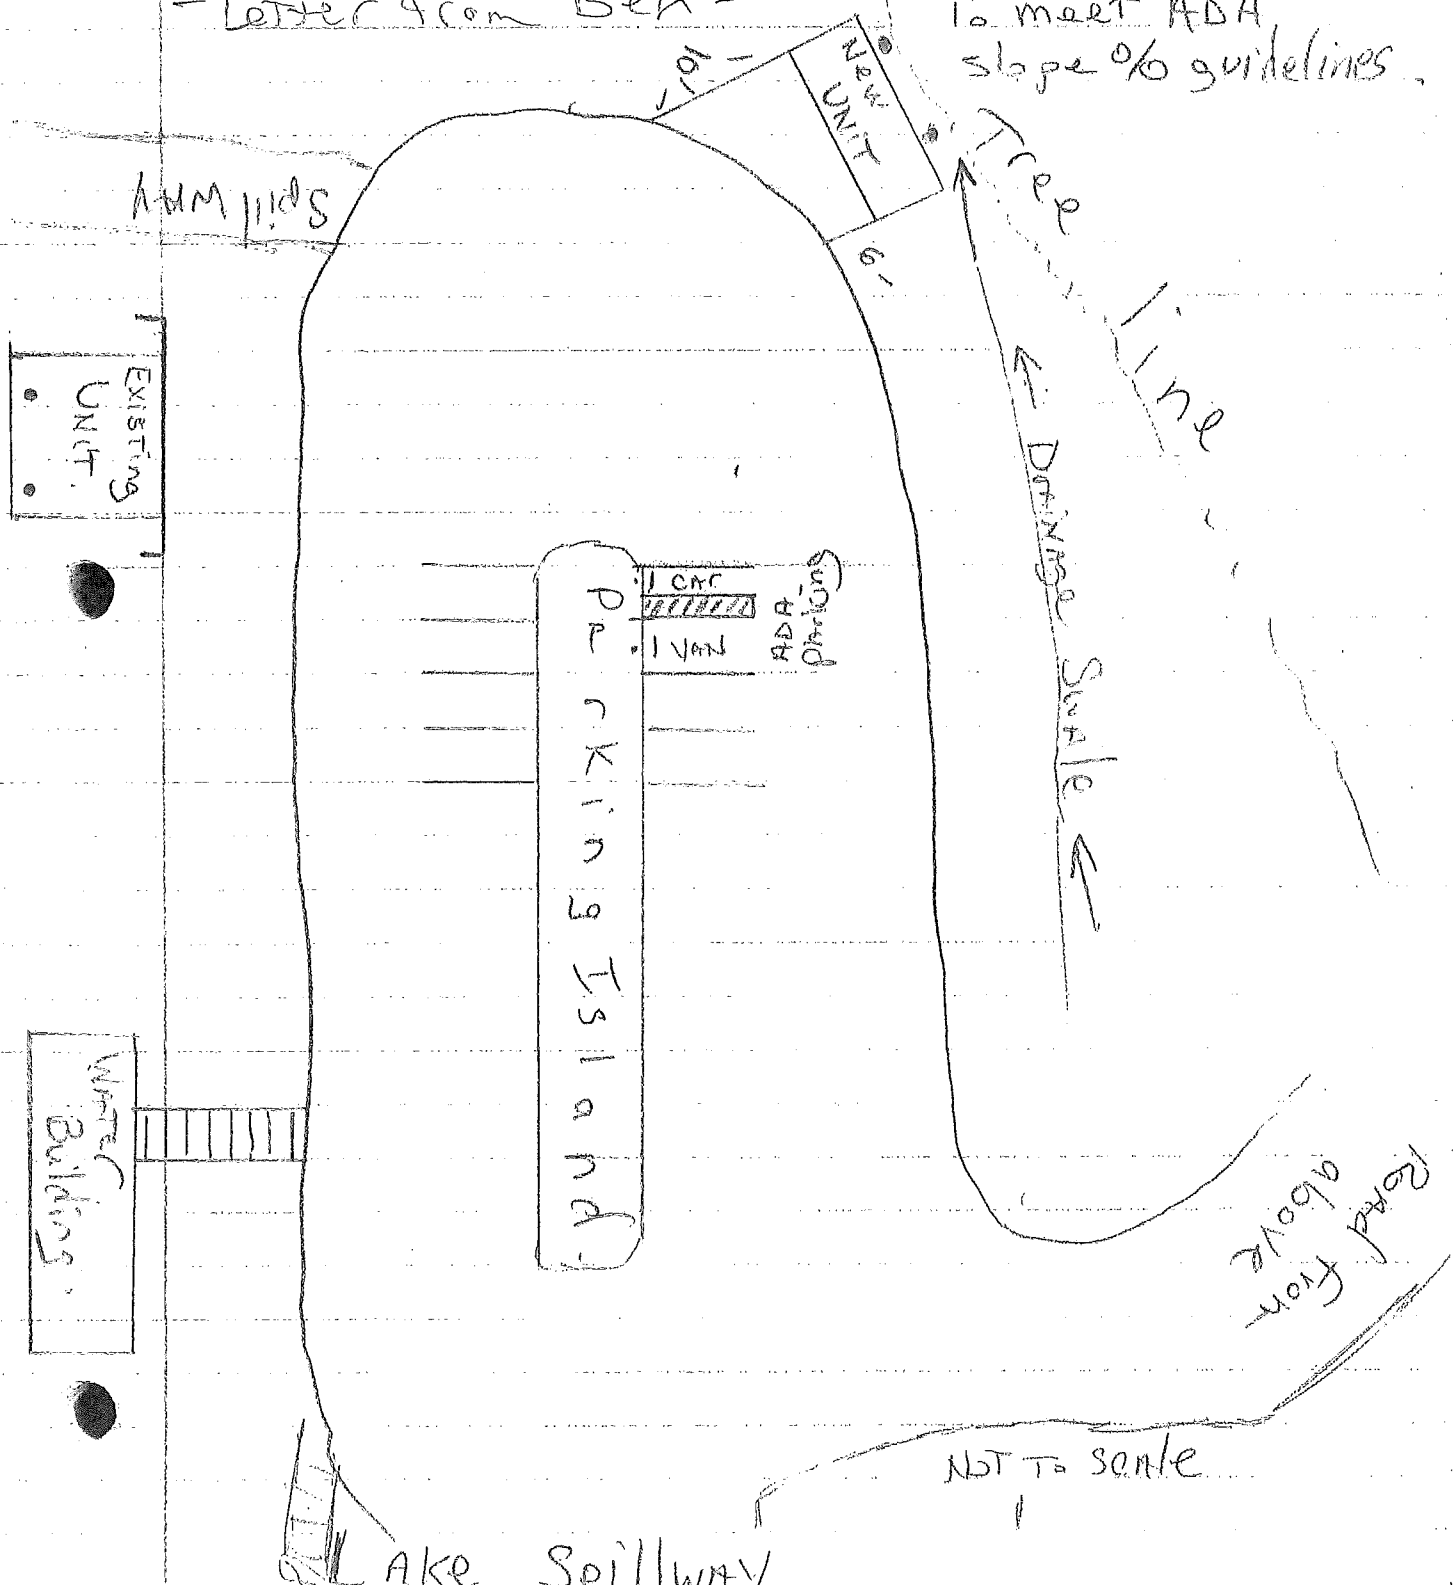 - Letter from Ben -
To meet ADA
slope % guidelines.
10'
New
UNIT
Tree
line
SpillWAY
6'
Existing
UNIT.
← Drainage Swale ←
1 CAr
1 VAN
ADA
parking
Parking Island
Water
Building.
Road from
above
NOT To scale
LAke Spillway